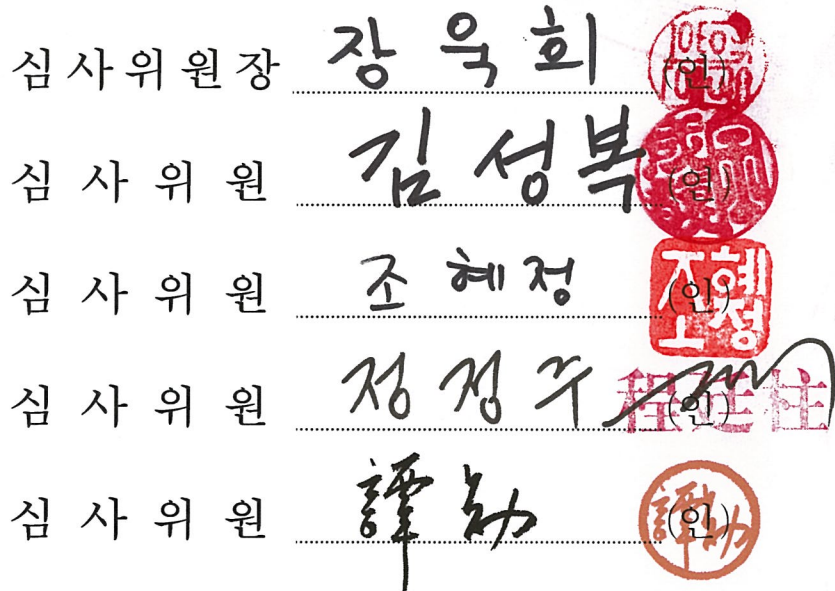 심사위원장 장욱희 (인)
심사위원 김성복 (인)
심사위원 조혜정 (인) 조혜정
심사위원 정정주 (인) 程廷柱
심사위원 譚勛 (인)